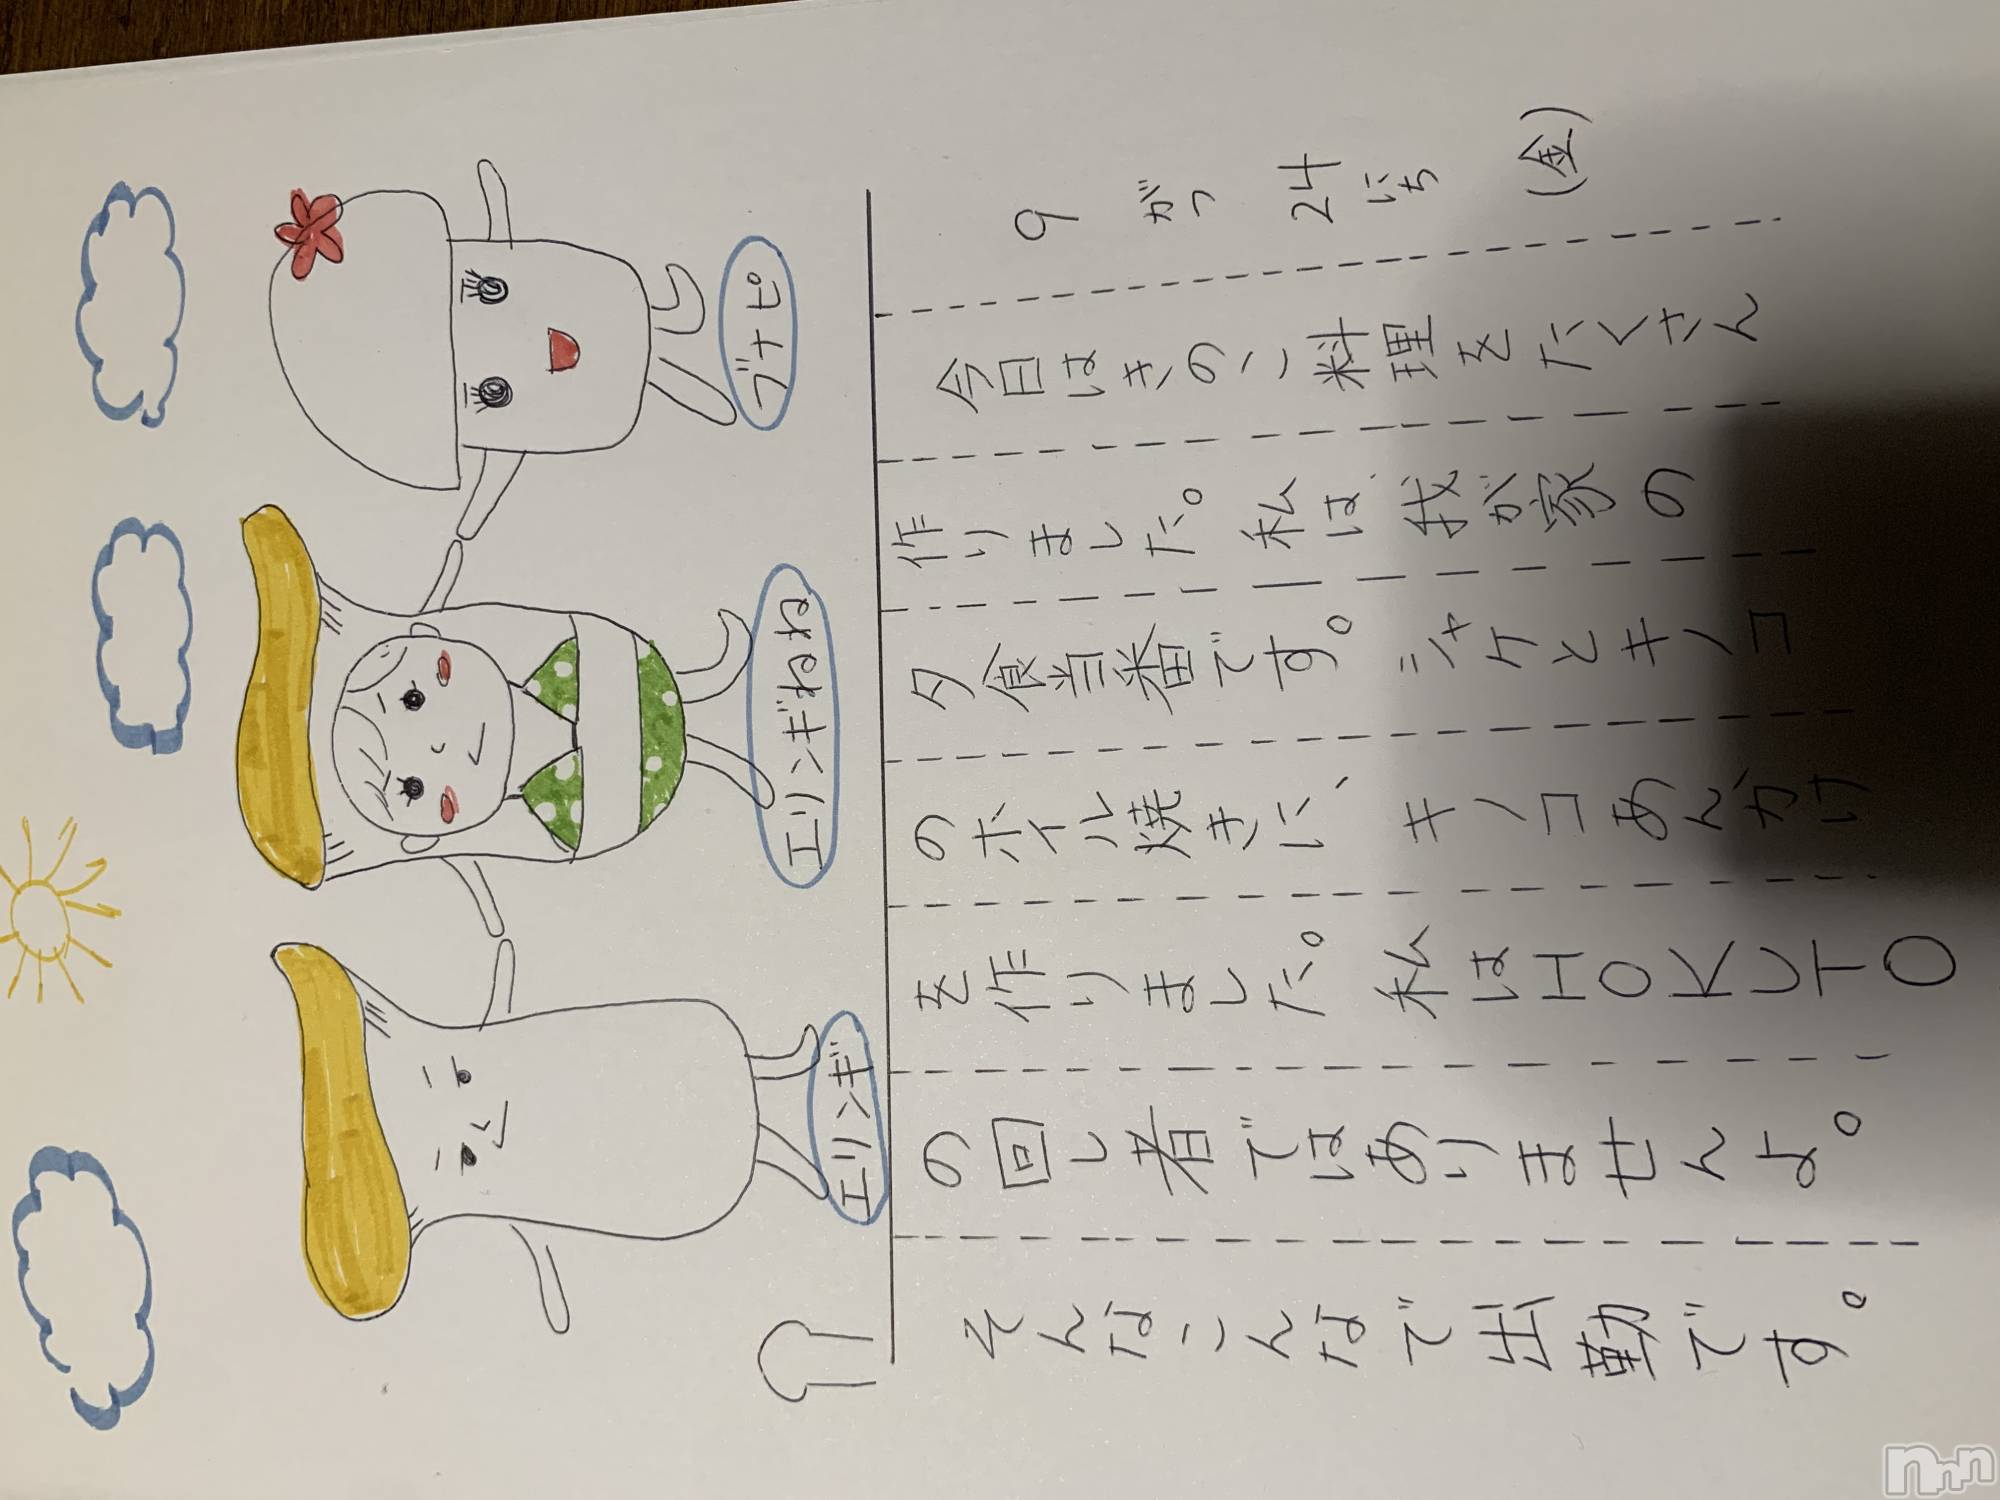 9がつ24にち（金）
今日はきのこ料理をたくさん
作りました。私は我が家の
夕食当番です。シャケとキノコ
のホイル焼きに、キノコあんかけ
を作りました。私はHOKUTO
の回し者ではありませんよ。
そんなこんなで出勤です。
ブナピ
エリンギねね
エリンギ
nnn